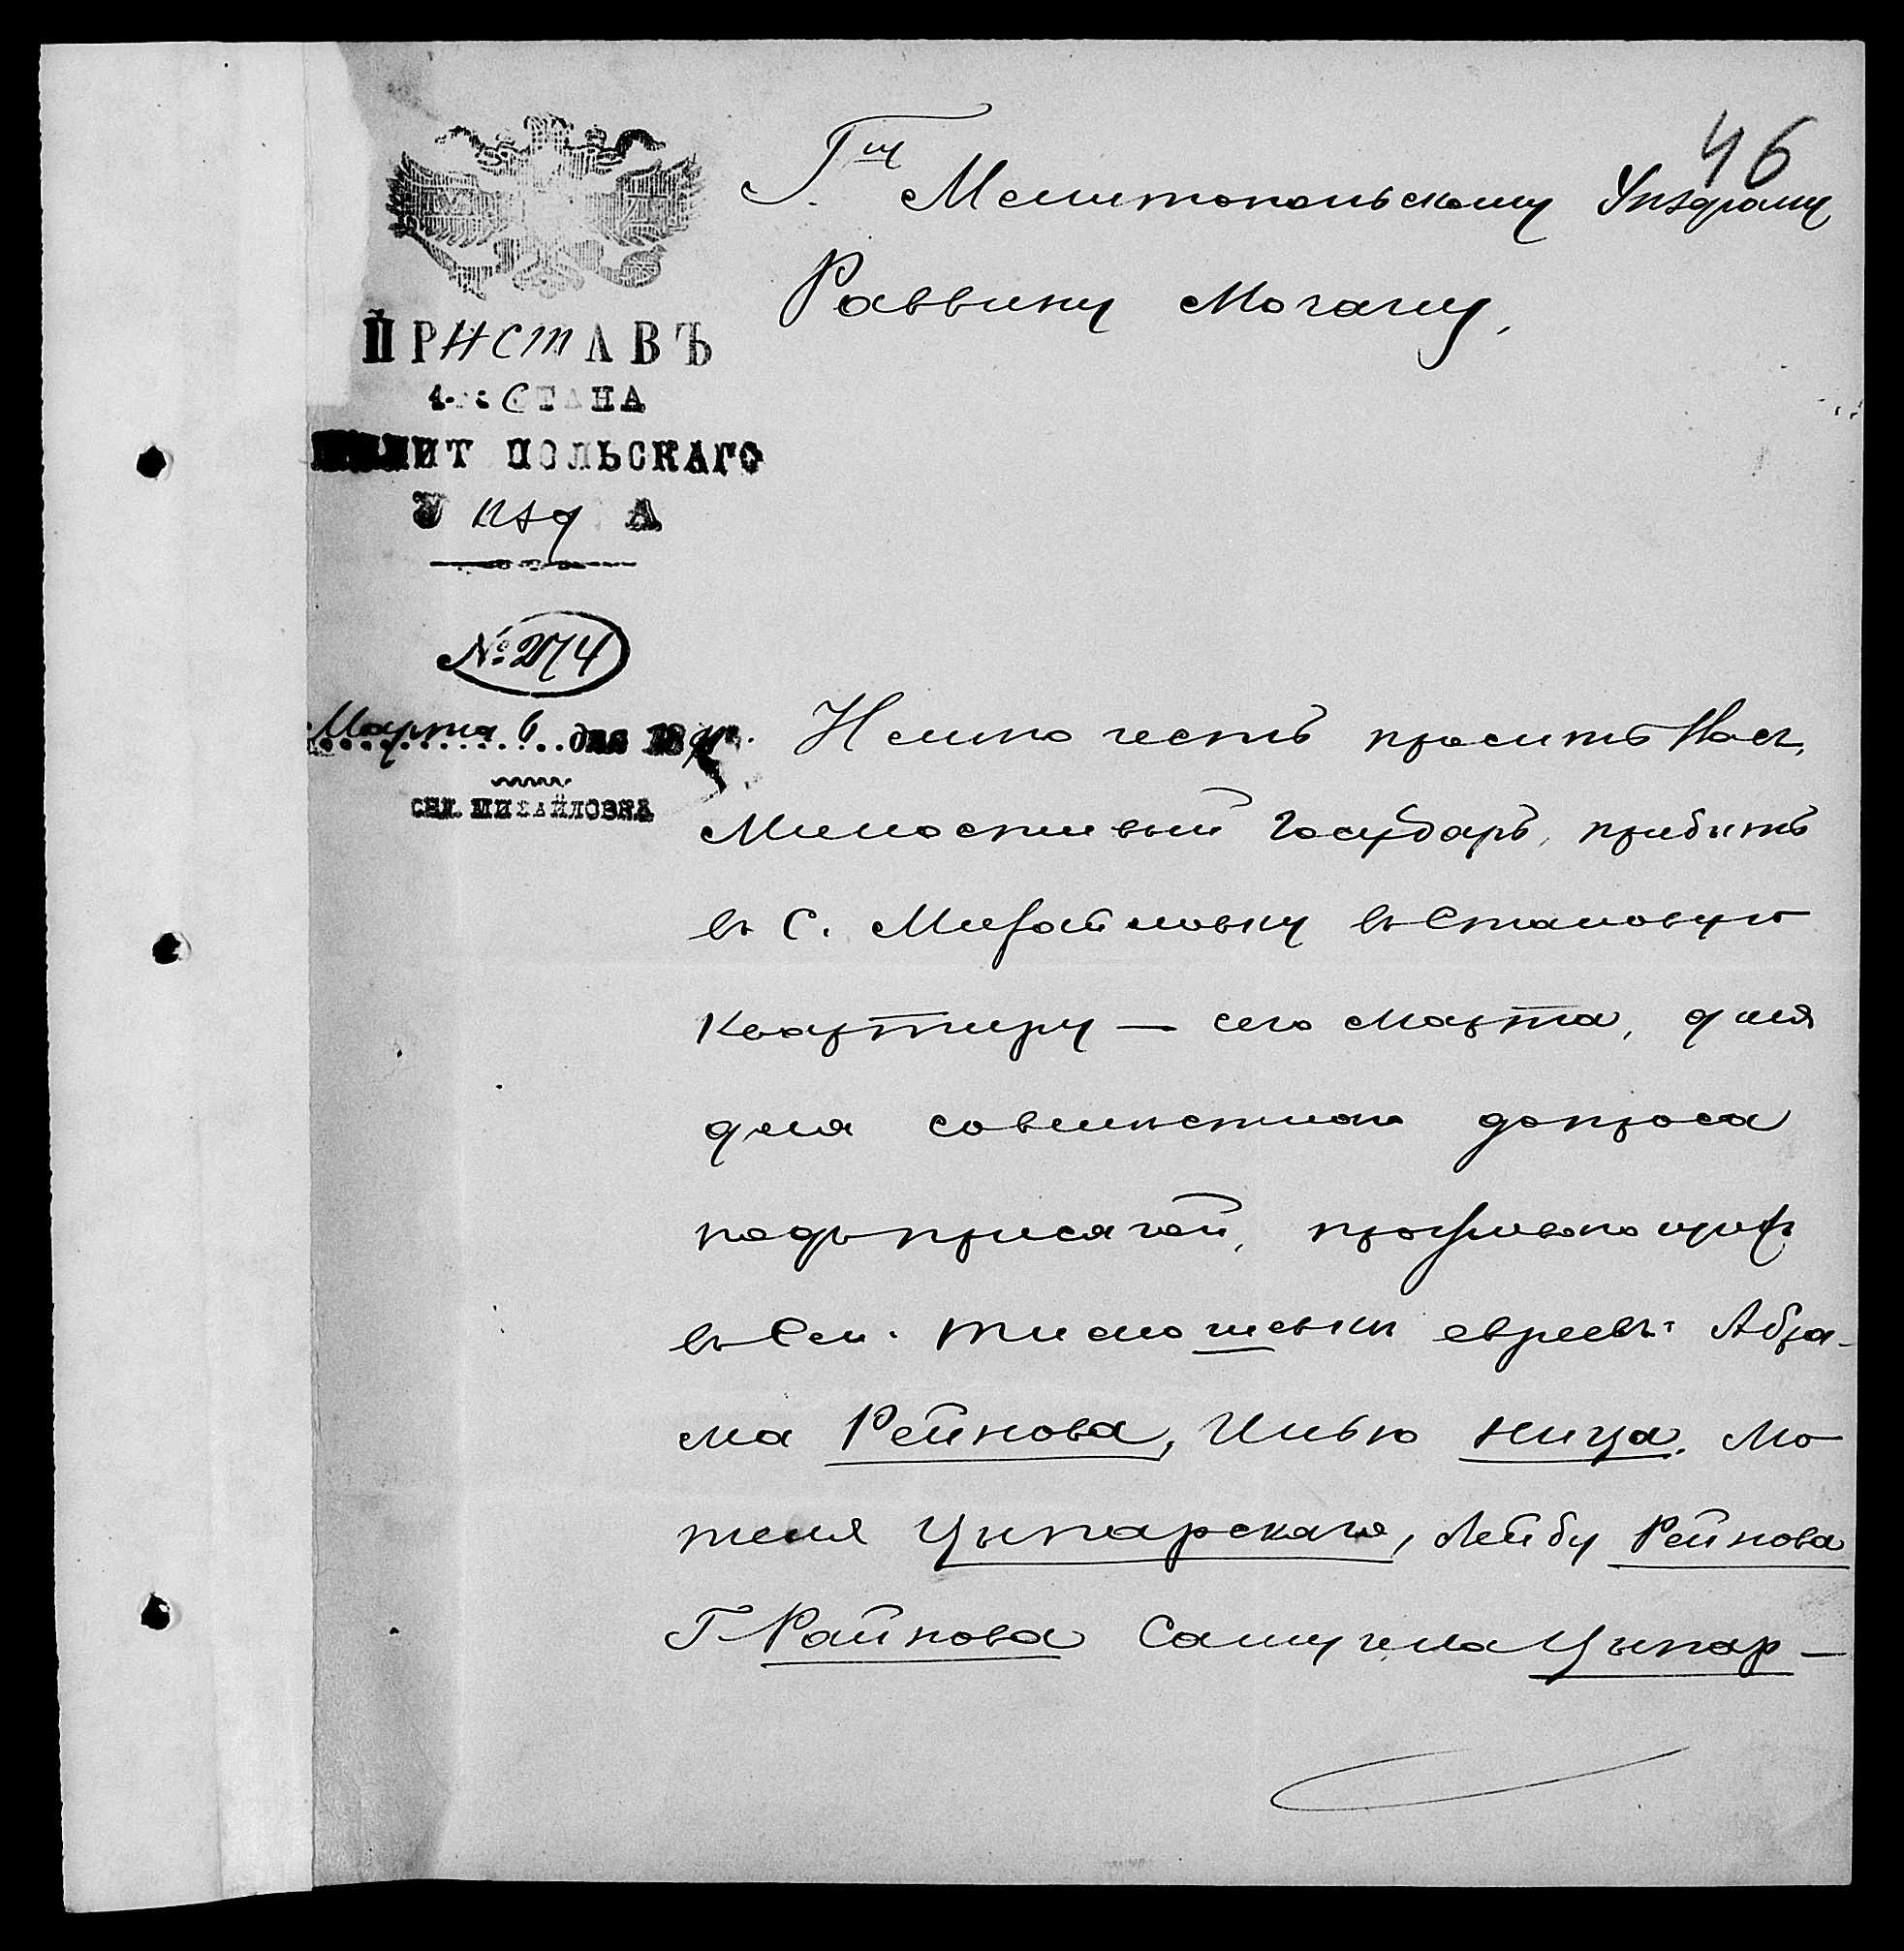 46
Г.ну Мелитопольскому Уѣздному
Раввину Могачу,
ПРИСТАВЪ
СТАНА
ПОЛЬСКАГО
№ 274
Марта 6 дня
СЕЛ. МИХАЙЛОВКА
Имею честь просить Вас,
Милостивый Государь, прибыть
въ С. Михайловку въ Становую
Квартиру — сего марта, для
для совмѣстного допроса
подъ присягой, проживающих
въ Сел. Тимошевки евреевъ: Абра-
ма Рейнова, Илью Ница, Мо
теля Цыпарскаго, Лейбу Рейнова
Г. Райнова Самуила Цыпар-